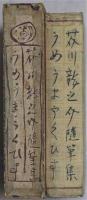 芥川龍之介随筆集
うめうまうぐひす
芥川龍之介随筆集
うめうまうぐひす